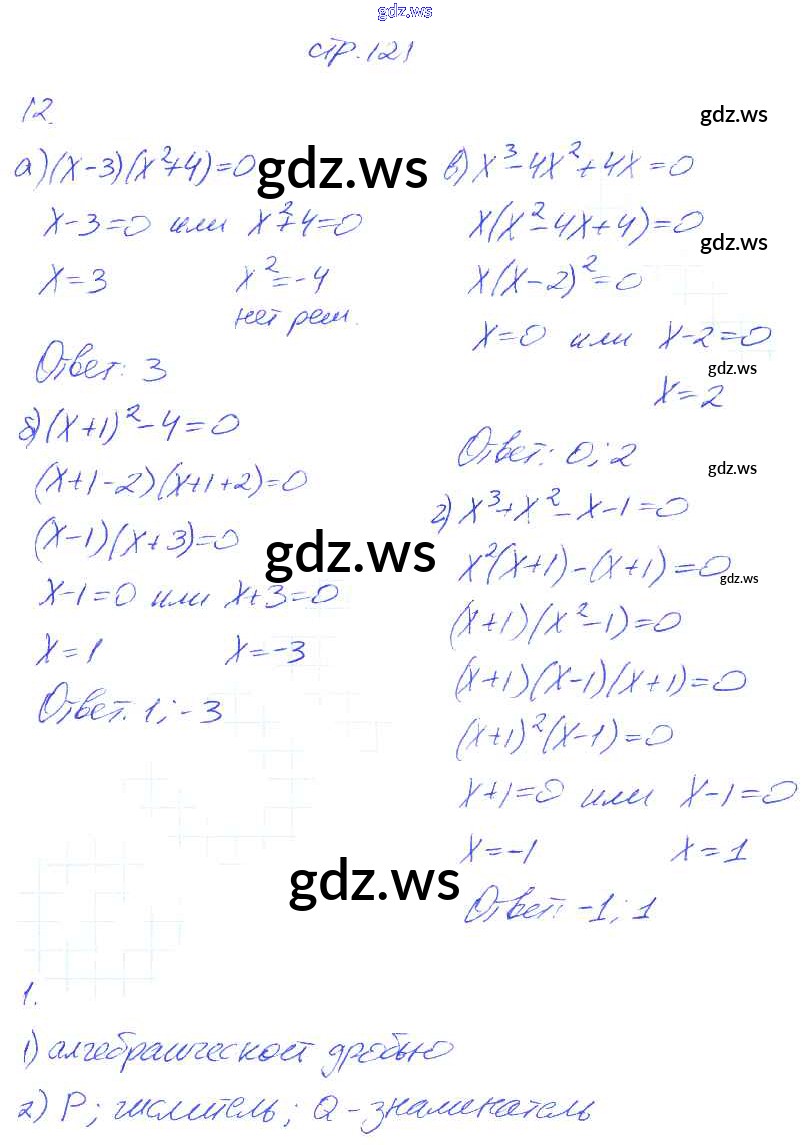 gdz.ws
стр. 121
12.
а) (x-3)(x²+4)=0
x-3=0 или x²+4=0
x=3 x²=-4
нет реш.
Ответ: 3
б) (x+1)²-4=0
(x+1-2)(x+1+2)=0
(x-1)(x+3)=0
x-1=0 или x+3=0
x=1 x=-3
Ответ. 1; -3
в) x³-4x²+4x=0
x(x²-4x+4)=0
x(x-2)²=0
x=0 или x-2=0
x=2
Ответ: 0; 2
г) x³+x²-x-1=0
x²(x+1)-(x+1)=0
(x+1)(x²-1)=0
(x+1)(x-1)(x+1)=0
(x+1)²(x-1)=0
x+1=0 или x-1=0
x=-1 x=1
Ответ: -1; 1
1.
1) алгебраической дробью
2) P; числитель; Q - знаменатель
gdz.ws
gdz.ws
gdz.ws
gdz.ws
gdz.ws
gdz.ws
gdz.ws
gdz.ws